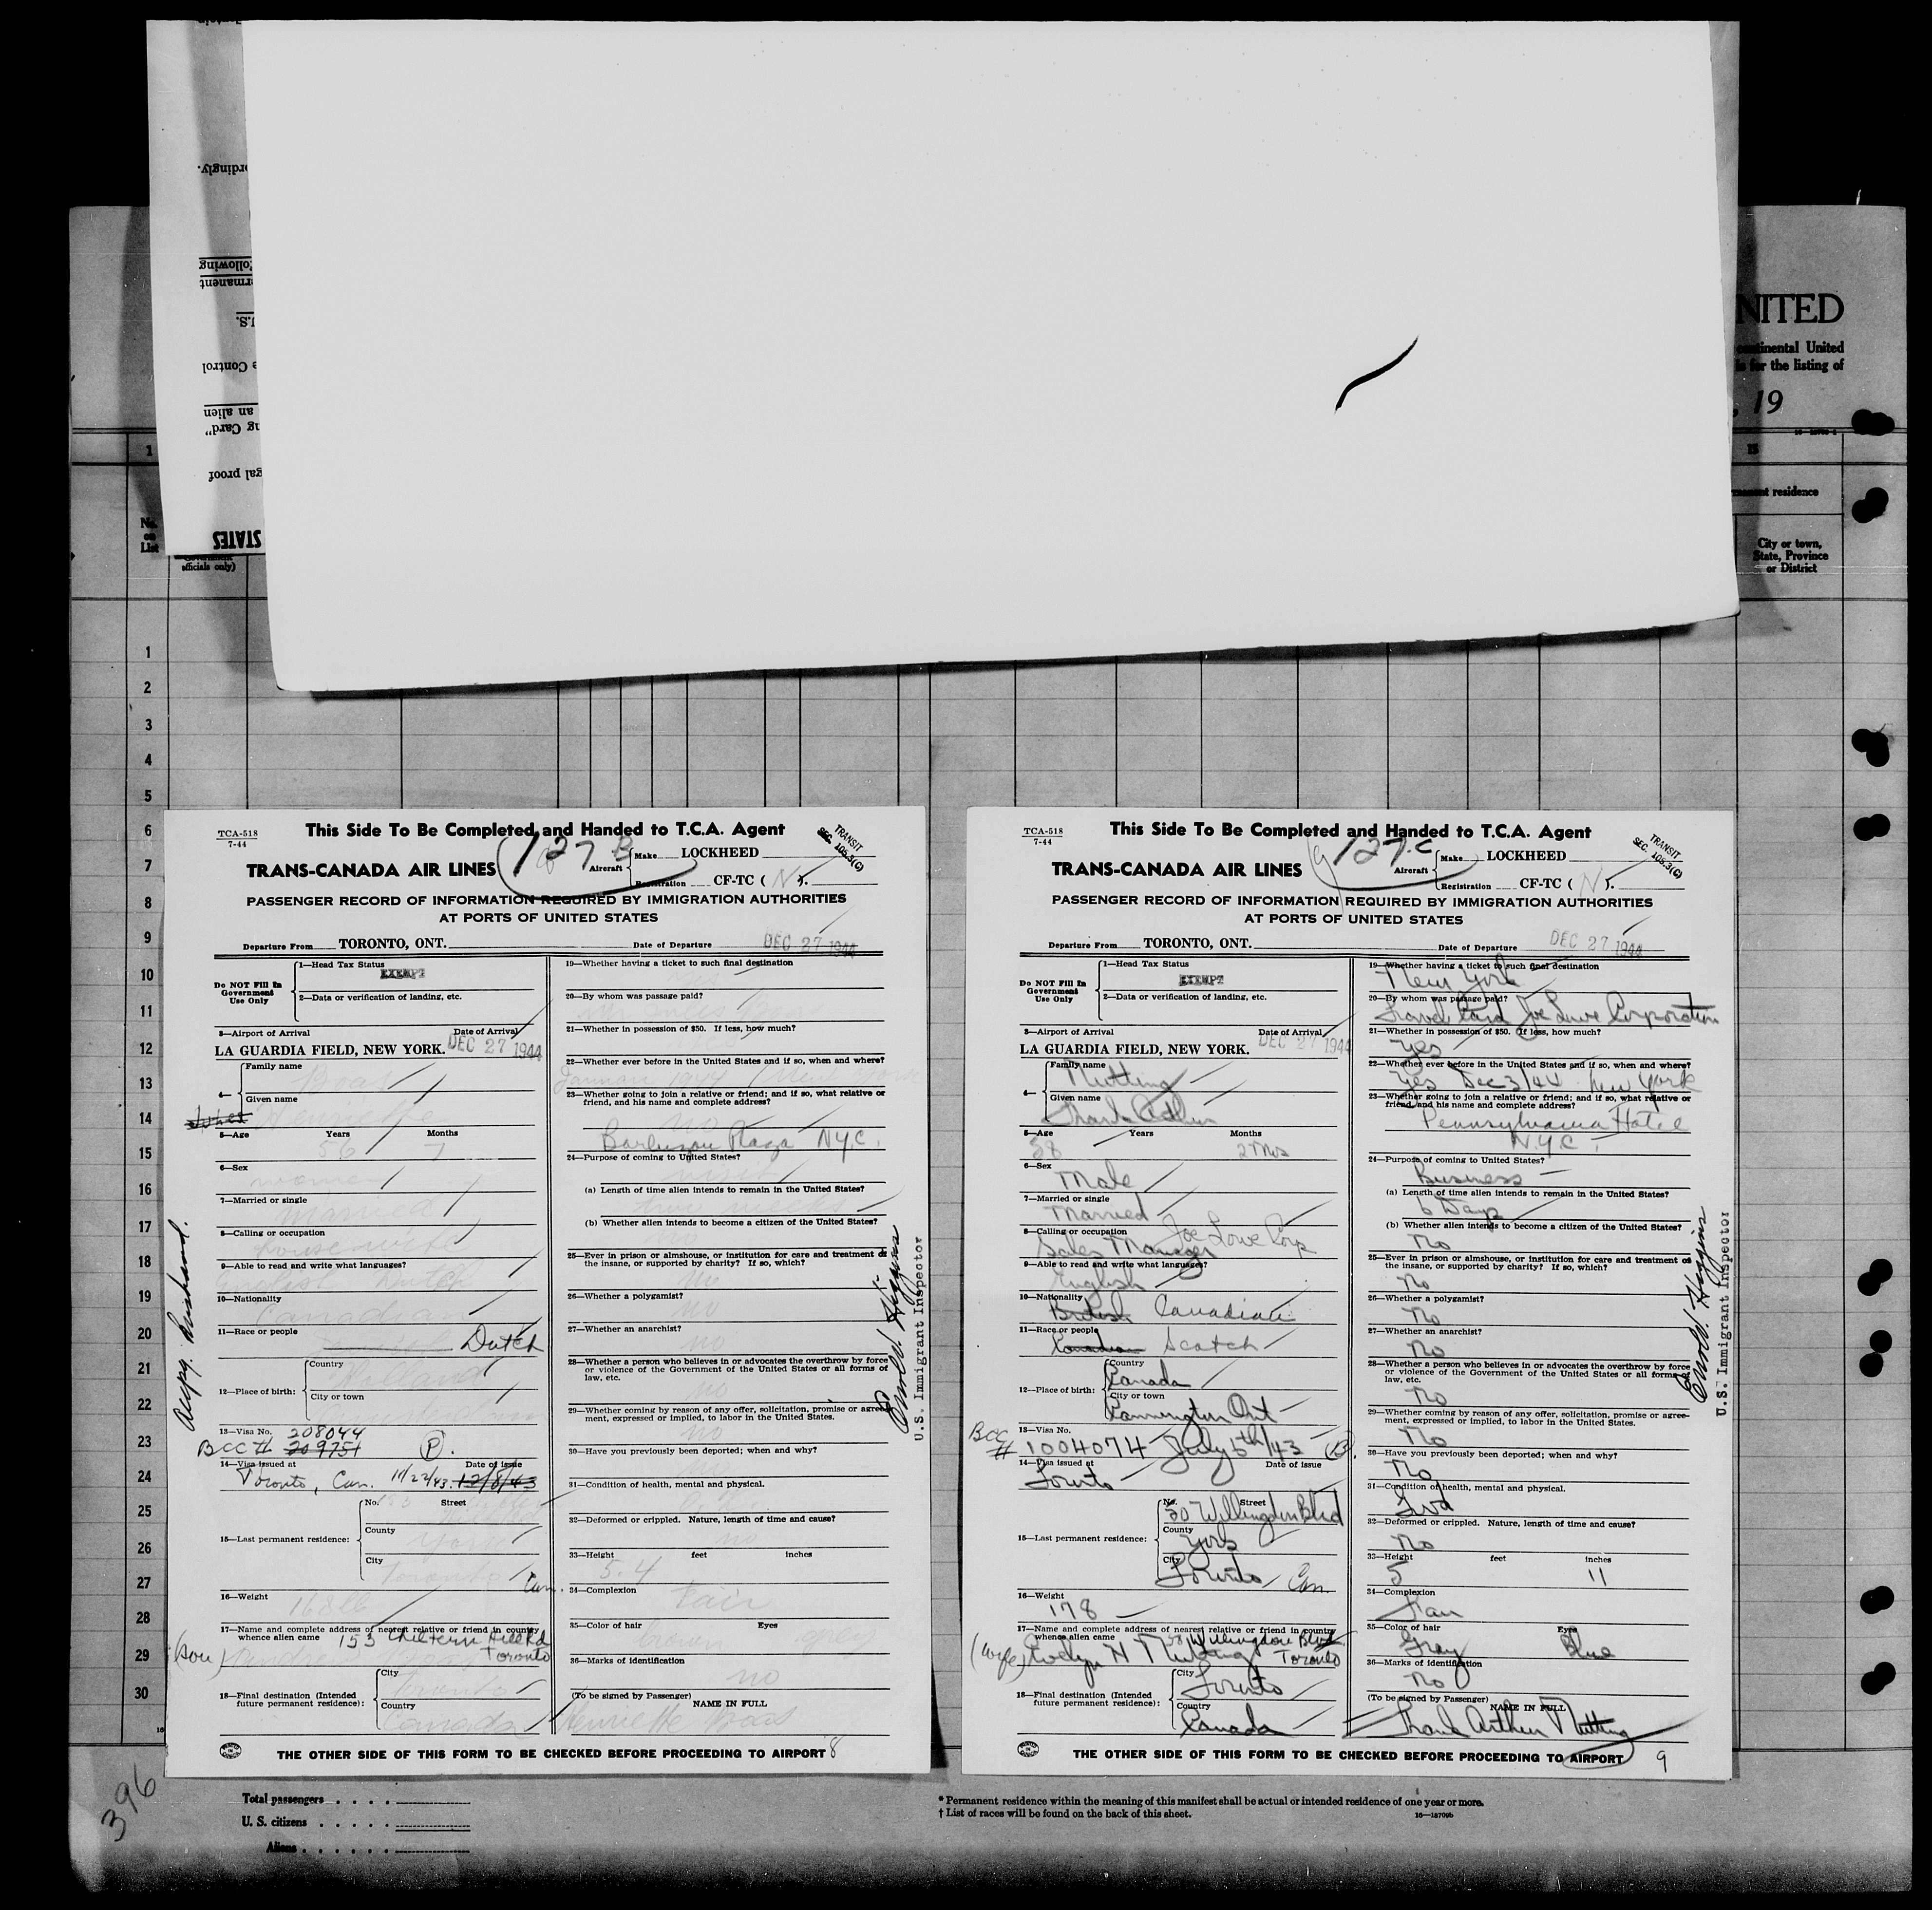 ordingly.
ollowing
rmanent
U.S.
e Control
an alien
ng Card"
gal proof
STATES
NITED
continental United
is for the listing of
, 19
1
15
permanent residence
No.
on
List
officials only)
City or town,
State, Province
or District
1
2
3
4
5
6
7
8
9
10
11
12
13
14
15
16
17
18
19
20
21
22
23
24
25
26
27
28
29
30
TCA-518
7-44
This Side To Be Completed and Handed to T.C.A. Agent
TRANSIT
SEC. 105.3(C)
127 B
TRANS-CANADA AIR LINES
Aircraft
Make LOCKHEED
Registration CF-TC ( N ).
PASSENGER RECORD OF INFORMATION REQUIRED BY IMMIGRATION AUTHORITIES
AT PORTS OF UNITED STATES
Departure From TORONTO, ONT. Date of Departure DEC 27 1944
Do NOT Fill In
Government
Use Only
1—Head Tax Status
EXEMPT
2—Data or verification of landing, etc.
3—Airport of Arrival Date of Arrival
LA GUARDIA FIELD, NEW YORK. DEC 27 1944
4—
Family name
Boas
Given name
Henriette
5—Age Years Months
56 7
6—Sex
woman
7—Married or single
Married
8—Calling or occupation
housewife
9—Able to read and write what languages?
English Dutch
10—Nationality
Canadian
11—Race or people
Dutch
12—Place of birth:
Country
Holland
City or town
13—Visa No. 208044
BCC # 209751 (P).
14—Visa issued at Date of issue
Toronto, Can. 11/22/43. 12/8/43
15—Last permanent residence:
No. Street
153
County
York
City
Toronto Can.
16—Weight
168 lb
17—Name and complete address of nearest relative or friend in country
whence alien came 153 Chiltern Hill Rd
(son) Toronto
18—Final destination (Intended
future permanent residence):
City
Toronto
Country
Canada
19—Whether having a ticket to such final destination
20—By whom was passage paid?
21—Whether in possession of $50. If less, how much?
22—Whether ever before in the United States and if so, when and where?
23—Whether going to join a relative or friend; and if so, what relative or
friend, and his name and complete address?
no
Barbizon Plaza N.Y.C.
24—Purpose of coming to United States?
(a) Length of time alien intends to remain in the United States?
(b) Whether alien intends to become a citizen of the United States?
25—Ever in prison or almshouse, or institution for care and treatment of
the insane, or supported by charity? If so, which?
no
26—Whether a polygamist?
no
27—Whether an anarchist?
no
28—Whether a person who believes in or advocates the overthrow by force
or violence of the Government of the United States or all forms of
law, etc.
no
29—Whether coming by reason of any offer, solicitation, promise or agree-
ment, expressed or implied, to labor in the United States.
no
30—Have you previously been deported; when and why?
31—Condition of health, mental and physical.
32—Deformed or crippled. Nature, length of time and cause?
no
33—Height feet inches
5.4
34—Complexion
Fair
35—Color of hair Eyes
brown grey
36—Marks of identification
no
(To be signed by Passenger) NAME IN FULL
Henriette Boas
THE OTHER SIDE OF THIS FORM TO BE CHECKED BEFORE PROCEEDING TO AIRPORT 8
Accpg. husband.
Higgins
U.S. Immigrant Inspector
TCA-518
7-44
This Side To Be Completed and Handed to T.C.A. Agent
TRANSIT
SEC. 105.3(C)
127 C
TRANS-CANADA AIR LINES
Aircraft
Make LOCKHEED
Registration CF-TC ( N ).
PASSENGER RECORD OF INFORMATION REQUIRED BY IMMIGRATION AUTHORITIES
AT PORTS OF UNITED STATES
Departure From TORONTO, ONT. Date of Departure DEC 27 1944
Do NOT Fill In
Government
Use Only
1—Head Tax Status
EXEMPT
2—Data or verification of landing, etc.
3—Airport of Arrival Date of Arrival
LA GUARDIA FIELD, NEW YORK. DEC 27 1944
4—
Family name
Nutting
Given name
Frank Arthur
5—Age Years Months
58 2 Mos
6—Sex
Male
7—Married or single
Married
8—Calling or occupation Joe Lowe Corp
Sales Manager
9—Able to read and write what languages?
English
10—Nationality
British Canadian
11—Race or people
Canadian Scotch
12—Place of birth:
Country
Canada
City or town
Cannington Ont
13—Visa No.
BCC # 1004074 July 5th/43 (B)
14—Visa issued at Date of issue
Toronto
15—Last permanent residence:
No. Street
30 Willingdon Blvd
County
York
City
Toronto Can.
16—Weight
178
17—Name and complete address of nearest relative or friend in country
whence alien came 30 Willingdon Blvd
(wife) Evelyn H Nutting Toronto
18—Final destination (Intended
future permanent residence):
City
Toronto
Country
Canada
19—Whether having a ticket to such final destination
New York
20—By whom was passage paid?
Travel Card Joe Lowe Corporation
21—Whether in possession of $50. If less, how much?
Yes
22—Whether ever before in the United States and if so, when and where?
Yes Dec 3/44 New York
23—Whether going to join a relative or friend; and if so, what relative or
friend, and his name and complete address?
Pennsylvania Hotel
N.Y.C.
24—Purpose of coming to United States?
Business
(a) Length of time alien intends to remain in the United States?
6 Days
(b) Whether alien intends to become a citizen of the United States?
No
25—Ever in prison or almshouse, or institution for care and treatment of
the insane, or supported by charity? If so, which?
No
26—Whether a polygamist?
No
27—Whether an anarchist?
No
28—Whether a person who believes in or advocates the overthrow by force
or violence of the Government of the United States or all forms of
law, etc.
No
29—Whether coming by reason of any offer, solicitation, promise or agree-
ment, expressed or implied, to labor in the United States.
No
30—Have you previously been deported; when and why?
No
31—Condition of health, mental and physical.
Good
32—Deformed or crippled. Nature, length of time and cause?
No
33—Height feet inches
5 11
34—Complexion
Fair
35—Color of hair Eyes
Gray Blue
36—Marks of identification
No
(To be signed by Passenger) NAME IN FULL
Frank Arthur Nutting
THE OTHER SIDE OF THIS FORM TO BE CHECKED BEFORE PROCEEDING TO AIRPORT 9
Higgins
U.S. Immigrant Inspector
396
Total passengers . . . .
U. S. citizens . . . . .
Aliens . . . . . .
* Permanent residence within the meaning of this manifest shall be actual or intended residence of one year or more.
† List of races will be found on the back of this sheet.
16—18709b